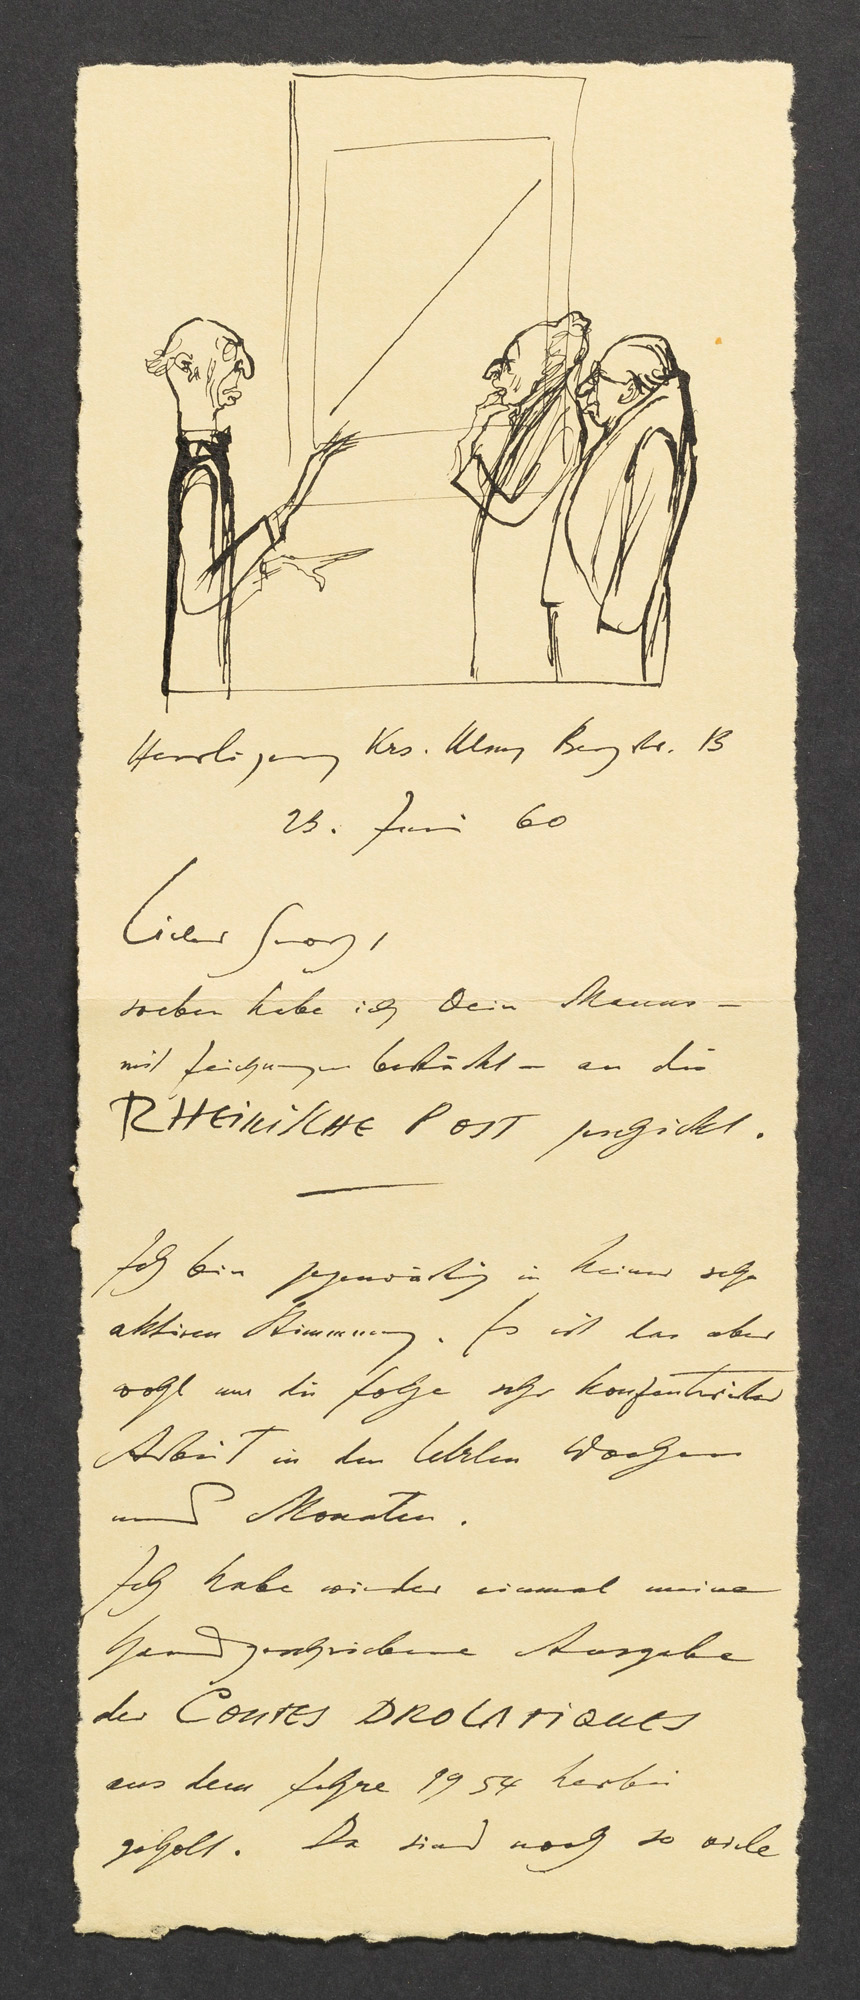 Krs. Bergstr. 13
23. Juni 60
Lieber Georg,
soeben habe ich Dein Manus –
mit Zeichnungen bestückt – an die
RHEINISCHE POST geschickt.
Ich bin gegenwärtig in keiner sehr
aktiven Stimmung. Es ist das aber
wohl nur die Folge sehr konzentrierter
Arbeit in den letzten Wochen
und Monaten.
Ich habe wieder einmal meine
handgeschriebene Ausgabe
der CONTES DROLATIQUES
aus dem Jahre 1954 herbei
geholt. Da sind noch so viele